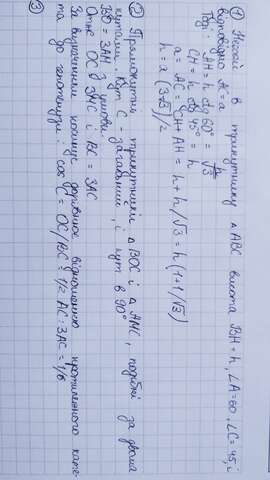 ① Нехай в трикутнику △ABC висота BH = h, ∠A = 60, ∠C = 45, і
відповідно AC = a
Тоді: AH = h ctg 60° = h/√3
CH = h ctg 45° = h
a = AC = CH + AH = h + h/√3 = h(1 + 1/√3)
h = a(3-√3)/2
② Прямокутні трикутники △BOC і △AMC, подібні за двома
кутами. Кут C - загальний, і кут в 90°
BO = 3AM з умови.
Отже OC = 3MC і BC = 3AC
За визначенням косинус дорівнює відношенню протилежного кате-
та до гіпотенузи: cos C = OC/BC = 1/2 AC : 3AC = 1/6
③